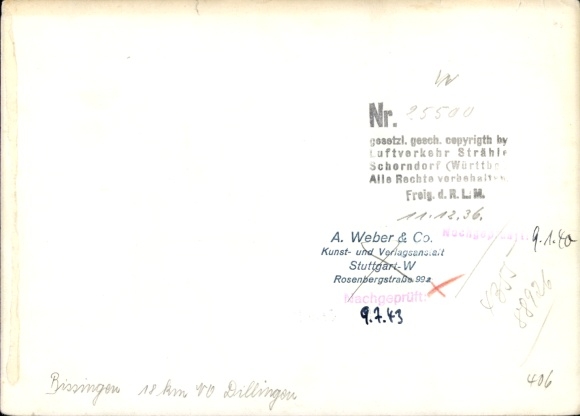 W
Nr. 25500
gesetzl. gesch. copyrigth by
Luftverkehr Strähle
Schorndorf (Württbg
Alle Rechte vorbehalten
Freig. d. R. L. M.
11.12.36.
Nachgeprüft: 9.1.40
A. Weber & Co.
Kunst- und Verlagsanstalt
Stuttgart-W
Rosenbergstraße 99a
Nachgeprüft:
9.7.43
88926
Bissingen 18 km NO Dillingen
406